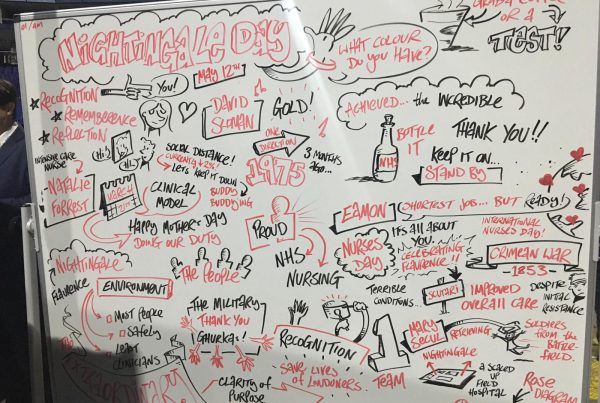 AM/AM
NIGHTINGALE DAY
MAY 12TH
YOU!
WHAT COLOUR
DO YOU HAVE?
OR A
TEST!
RECOGNITION
REMEMBERENCE
REFLECTION
DAVID
SLOMAN
GOLD!
ONE
DIRECTION
1
1975
3 MONTHS
AGO...
ACHIEVED... the INCREDIBLE
BOTTLE
IT
NHS
THANK YOU!!
KEEP IT ON...
STAND BY
INTENSIVE CARE
NURSE
NATALIE
FORREST
HI:)
HI:)
SOCIAL DISTANCE!
CURRENTLY 2%
LET'S KEEP IT DOWN
MARCH
CLINICAL
MODEL
BUDDY
BUDDYING
HAPPY MOTHER'S DAY
DOING OUR DUTY
PROUD
NHS
NURSING
EAMON
SHORTEST JOB... BUT READY!
NURSES
DAY
IT'S ALL ABOUT
YOU.
CELEBRATING
FLAURENCE!!
INTERNATIONAL
NURSES DAY!
CRIMEAN WAR
-1853-
NIGHTINGALE
FLAURENCE
ENVIRONMENT
MOST PEOPLE
SAFELY
LEAST
CLINICIANS
THE PEOPLE
THE MILITARY
THANK YOU
GHURKAS!
RECOGNITION
SAVE LIVES
OF LONDONERS
CLARITY OF
PURPOSE
TERRIBLE
CONDITIONS...
SCUTARI
IMPROVED
OVERALL CARE
DESPITE
INITIAL
RESISTANCE
1
TEAM
MARY
SECUL
RETRIEVING
SOLDIERS
FROM THE
BATTLE-
FIELD.
NIGHTINGALE
A SCALED
UP
FIELD
HOSPITAL
ROSE
DIAGRAM
THE